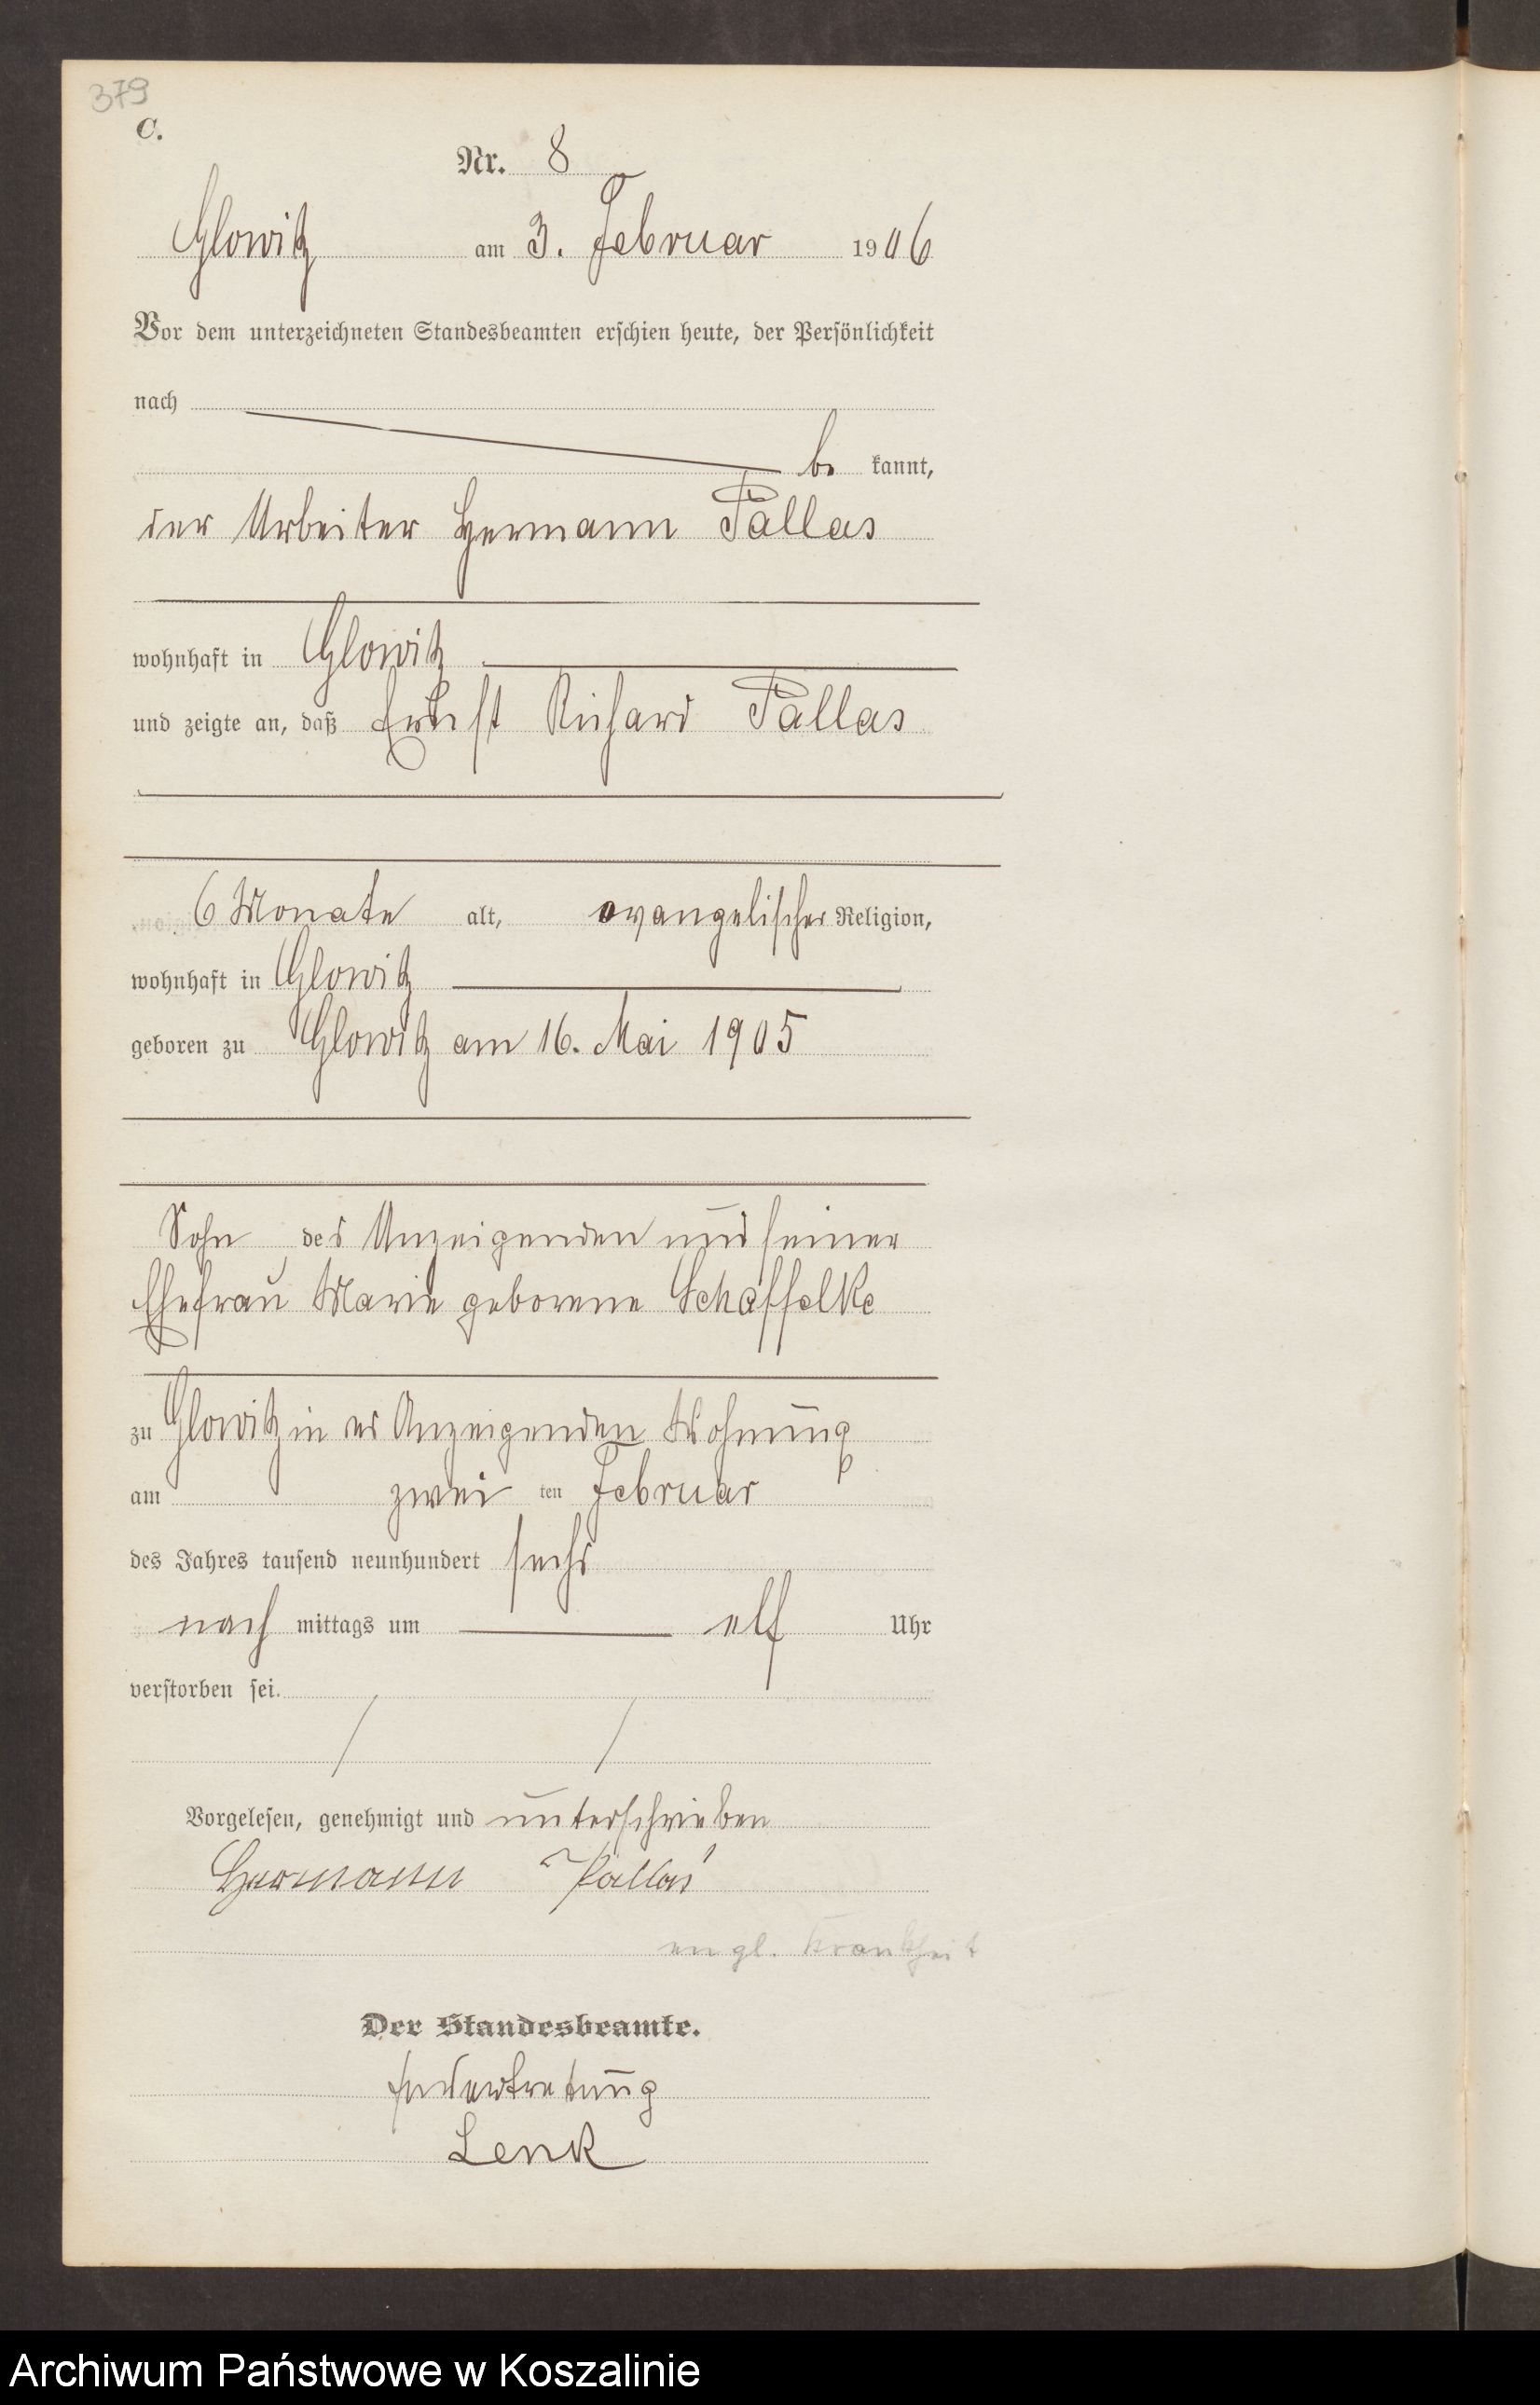 379
C.
Nr. 8
Glowitz am 3. Februar 1906
Vor dem unterzeichneten Standesbeamten erschien heute, der Persönlichkeit
nach
be kannt,
der Arbeiter Hermann Pallas
wohnhaft in Glowitz
und zeigte an, daß Ernst Richard Pallas
6 Monate alt, evangelischer Religion,
wohnhaft in Glowitz
geboren zu Glowitz am 16. Mai 1905
Sohn des Anzeigenden und seiner
Ehefrau Marie geborene Schaffelke
zu Glowitz in des Anzeigenden Wohnung
am zwei ten Februar
des Jahres tausend neunhundert sechs
nach mittags um elf Uhr
verstorben sei.
Vorgelesen, genehmigt und unterschrieben
Hermann Pallas
engl. Krankheit
Der Standesbeamte.
In Vertretung
Lenk
Archiwum Państwowe w Koszalinie